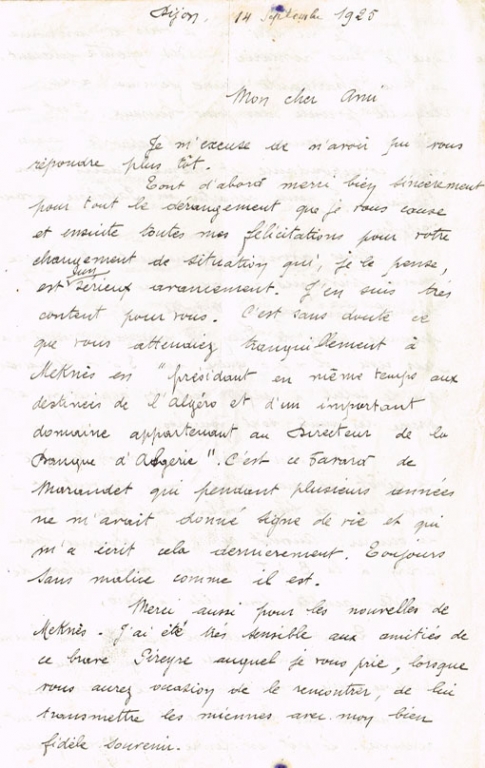 Dijon, 14 Septembre 1925
Mon cher Ami
Je m'excuse de n'avoir pu vous
répondre plus tôt.
Tout d'abord merci bien sincèrement
pour tout le dérangement que je vous cause
et ensuite toutes mes félicitations pour votre
changement de situation qui, je le pense,
est un sérieux avancement. J'en suis très
content pour vous. C'est sans doute ce
que vous attendiez tranquillement à
Meknès en "présidant en même temps aux
destinées de l'Algéro et d'un important
domaine appartenant au Directeur de la
Banque d'Algérie". C'est ce Favard de
qui pendant plusieurs années
ne m'avait donné signe de vie et qui
m'a écrit cela dernièrement. Toujours
sans malice comme il est.
Merci aussi pour les nouvelles de
Meknès. J'ai été très sensible aux amitiés de
ce brave Pireyre auquel je vous prie, lorsque
vous aurez occasion de le rencontrer, de lui
transmettre les miennes avec mon bien
fidèle souvenir.